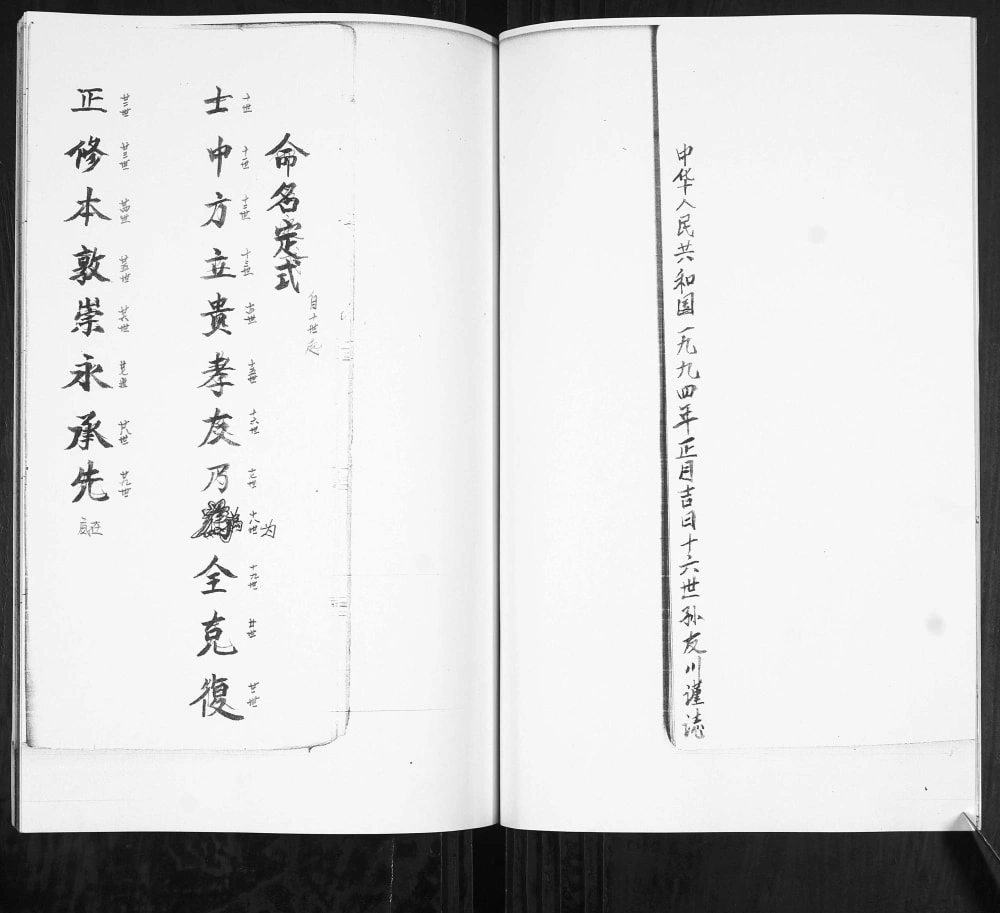 中华人民共和国一九九四年正月吉日十六世孙友川谨誌
命名定式
自十世起
士 十世
中 十一世
方 十二世
立 十三世
贵 十四世
孝 十五世
友 十六世
乃 十七世
为 十八世
全 十九世
克 廿世
復 廿一世
正 廿二世
修 廿三世
本 廿四世
敦 廿五世
崇 廿六世
永 廿七世
承 廿八世
先 廿九世